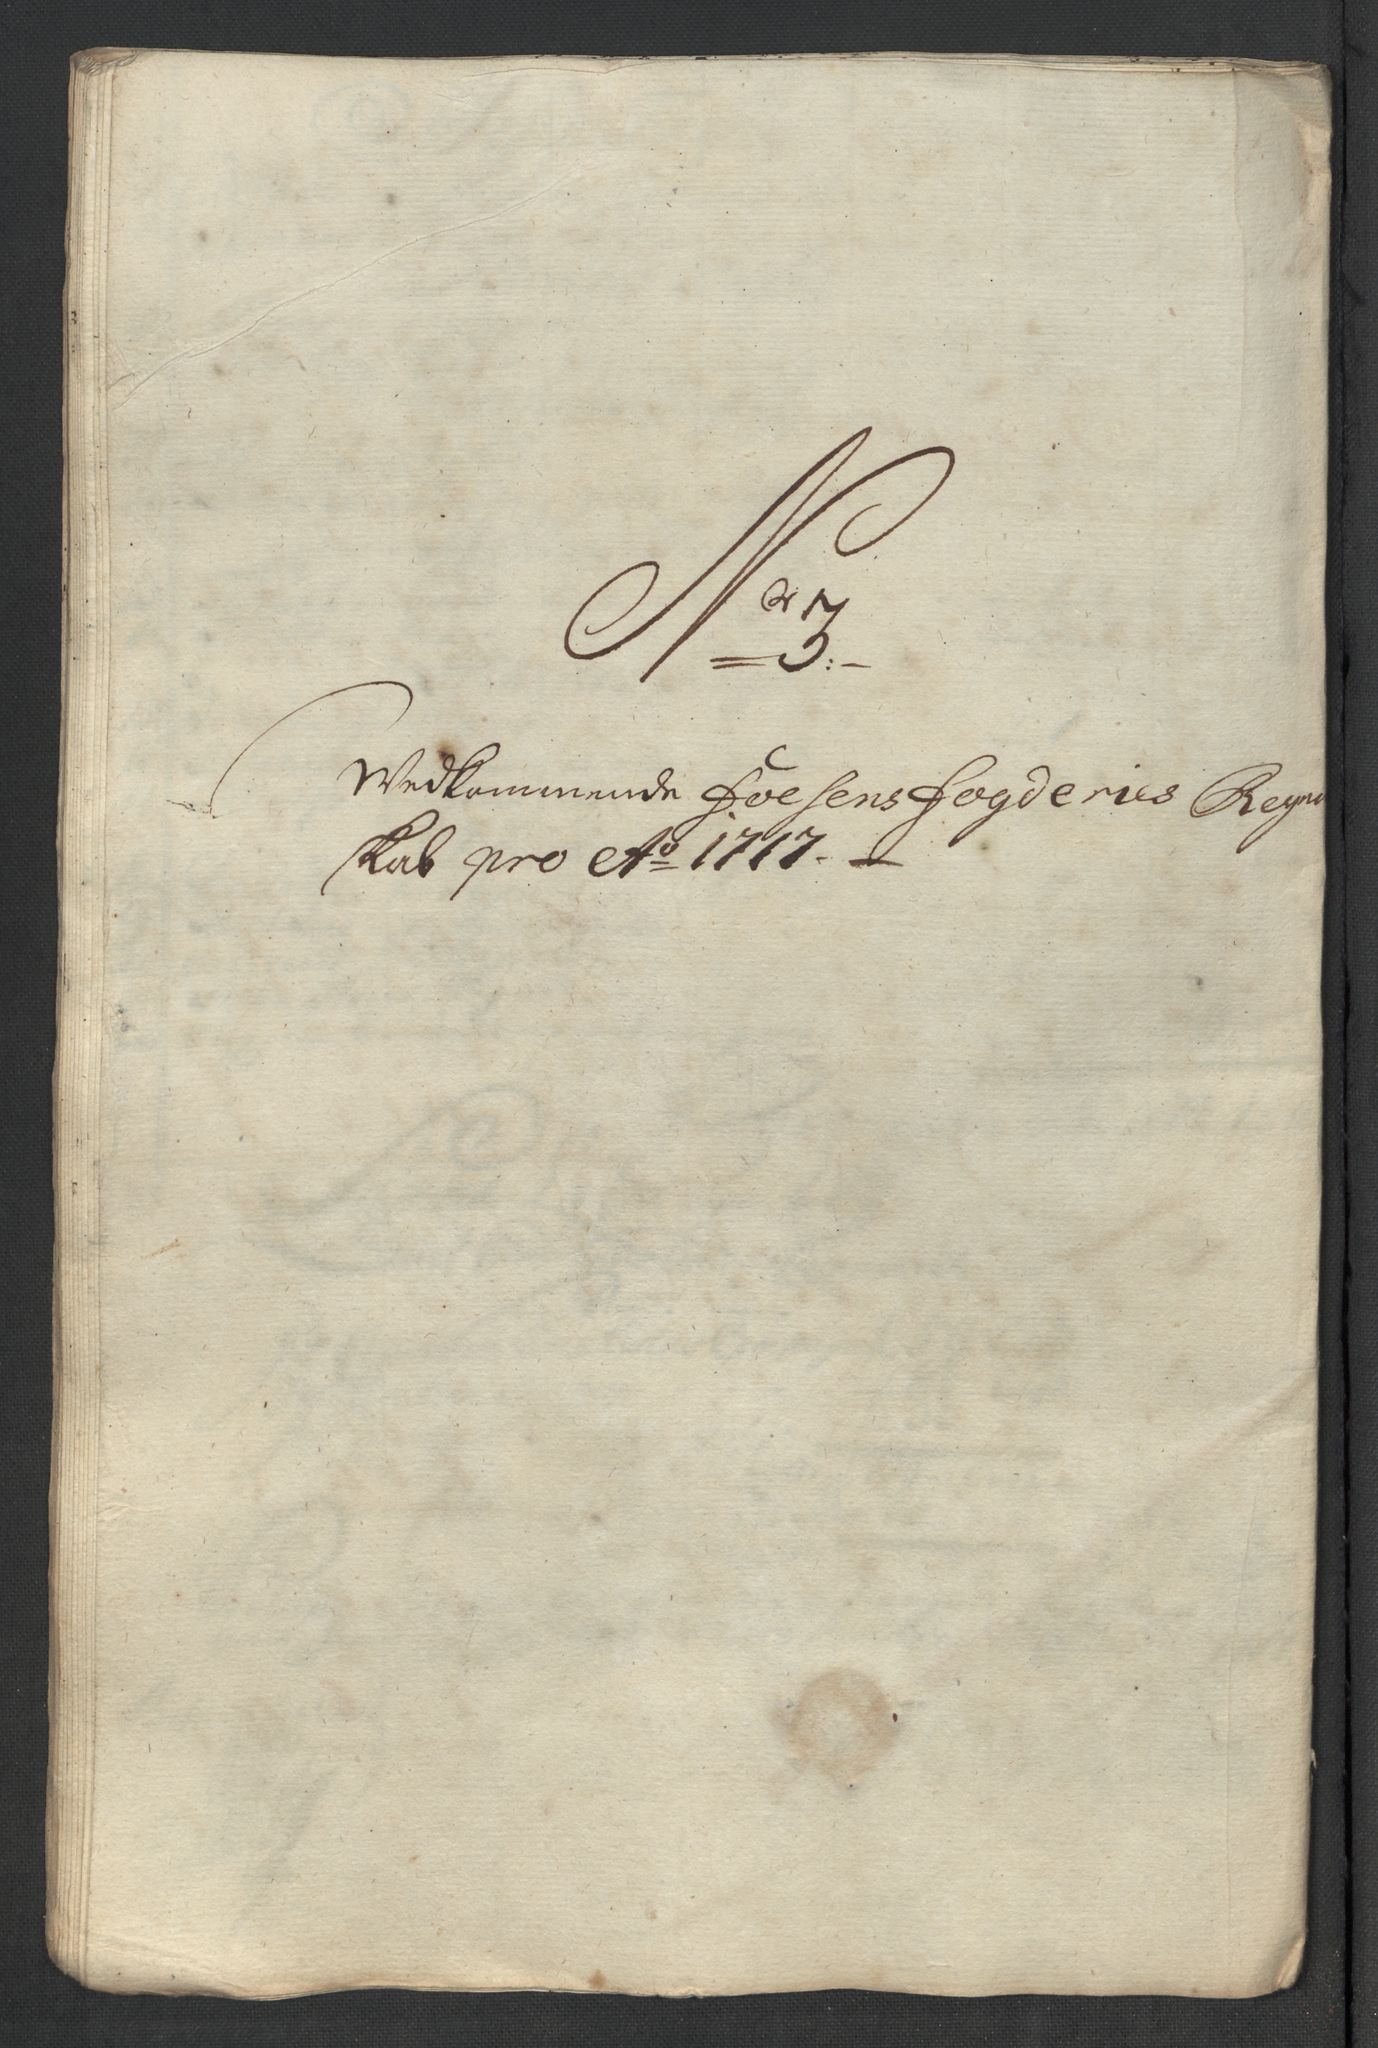 Nr 3.
Wedkommende Foesens Fogderies Regn
skab pro Ao 1717.